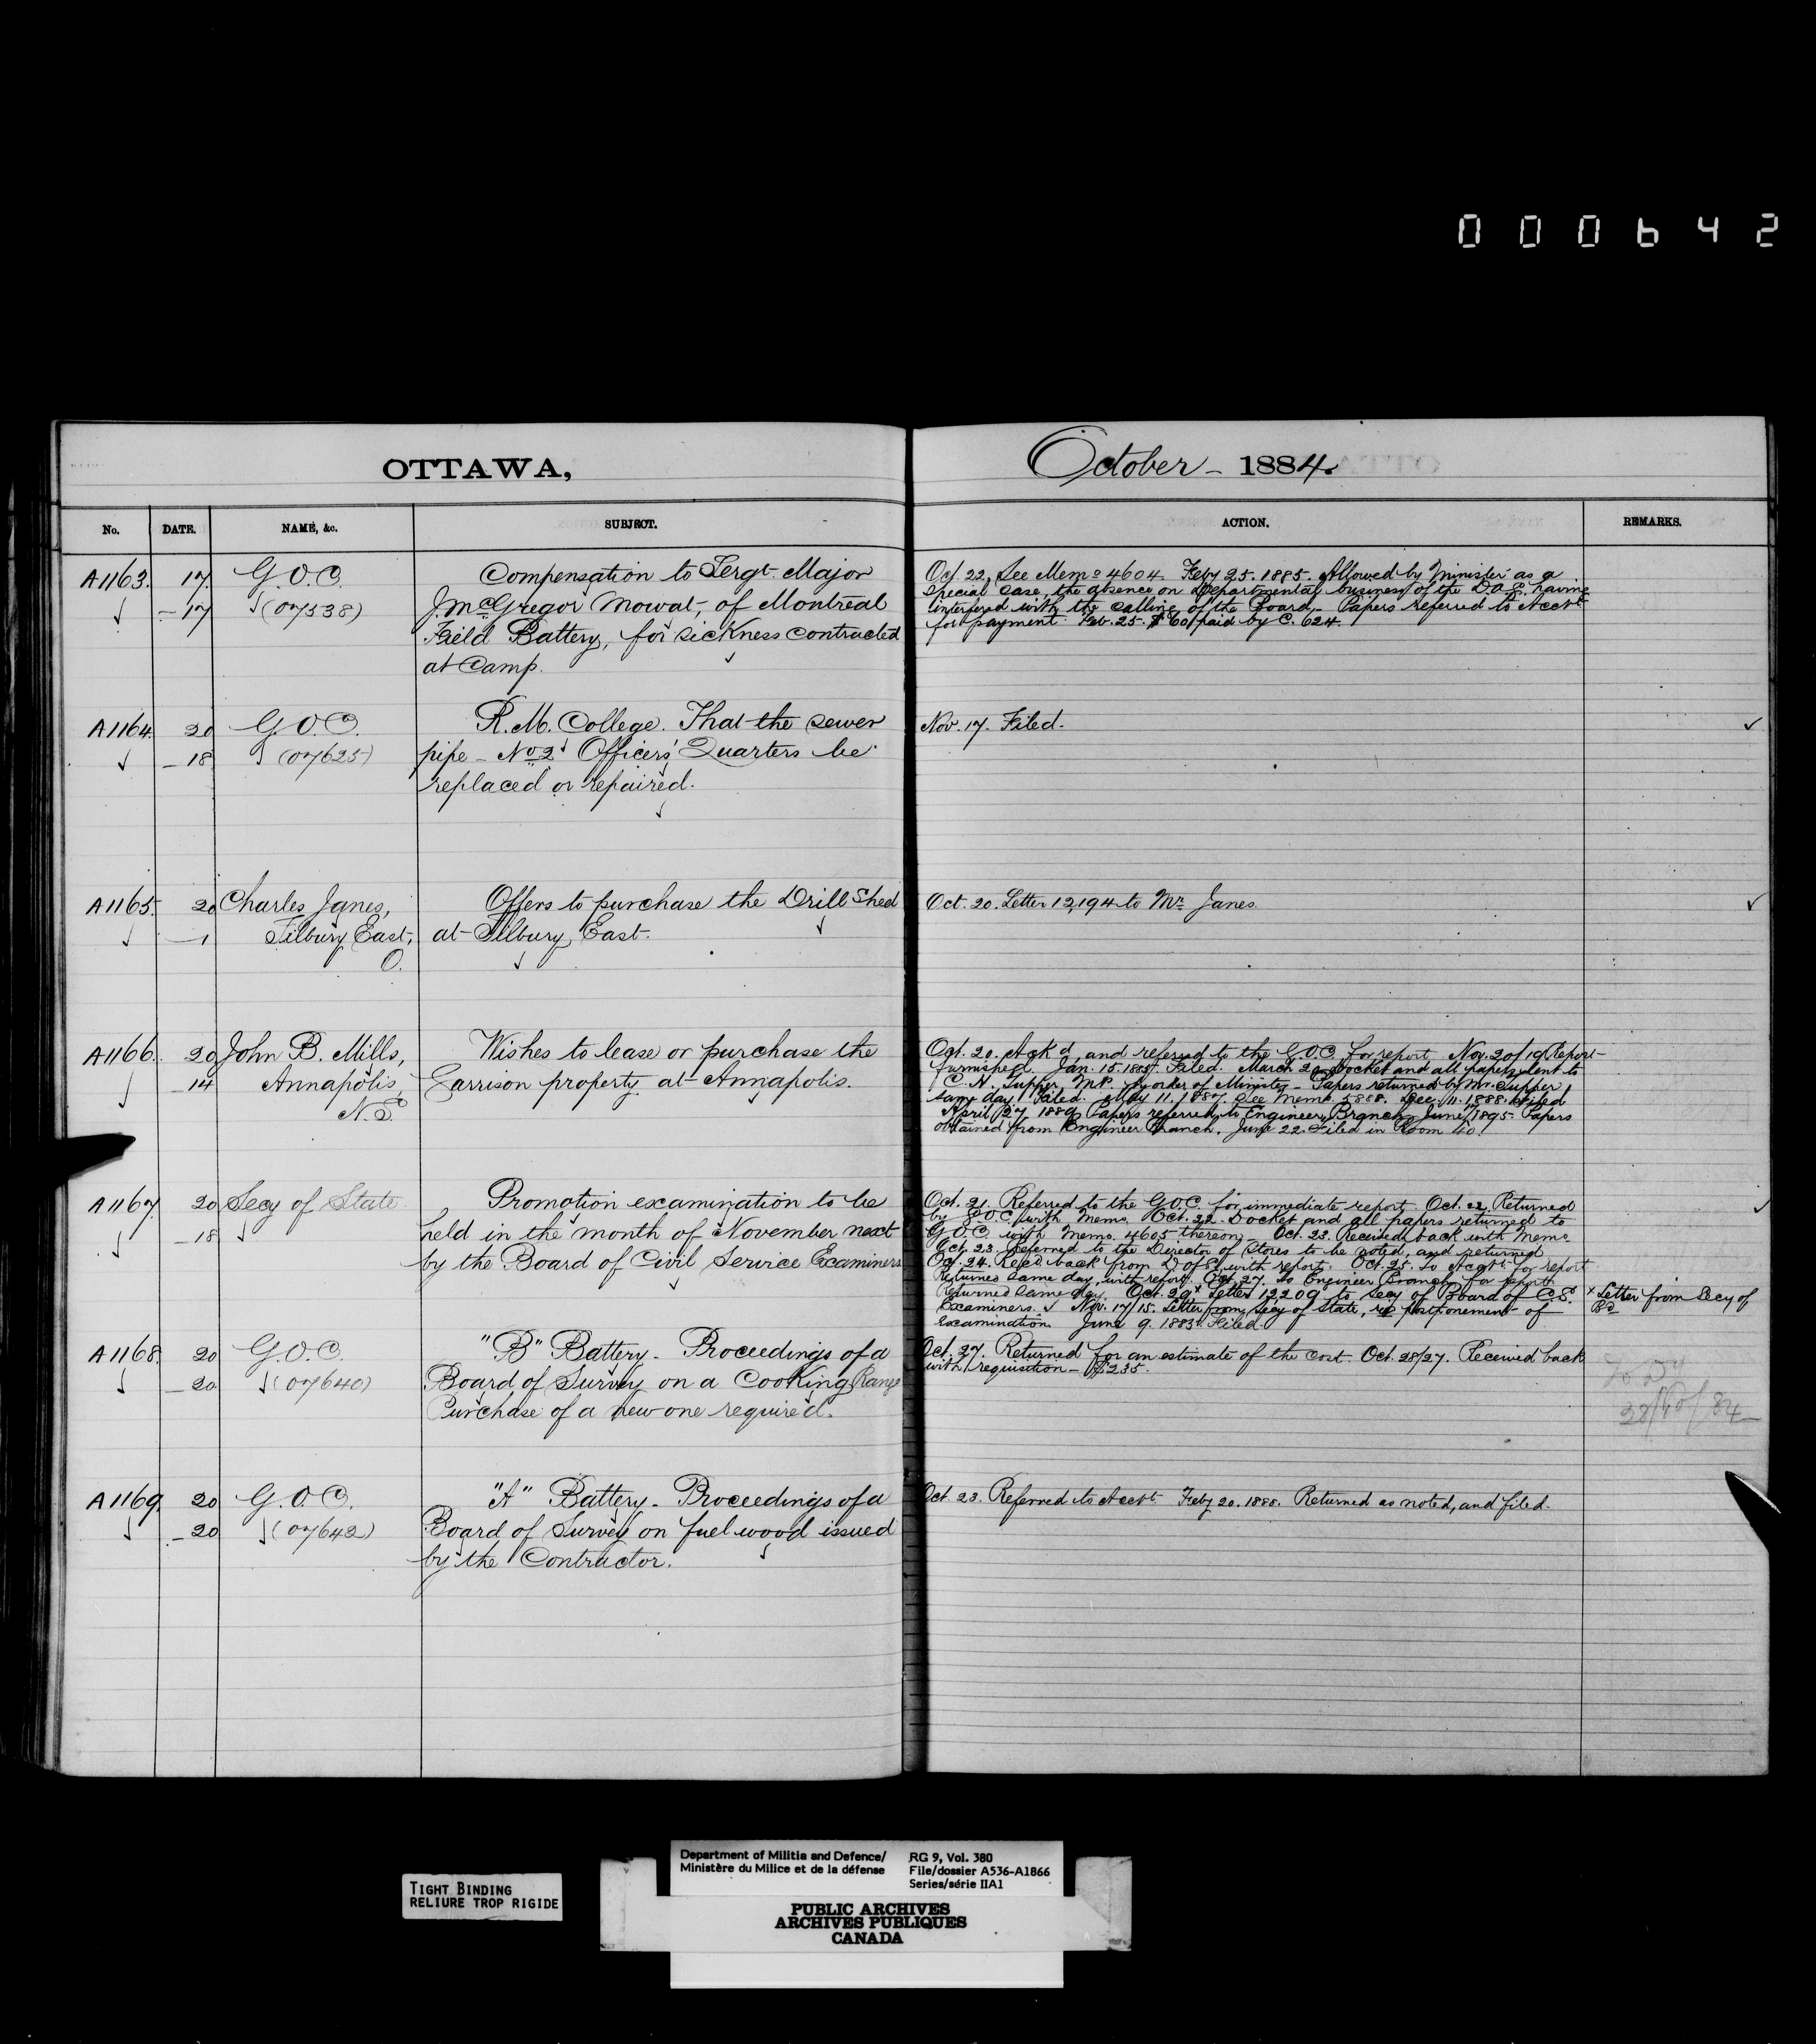 000642
OTTAWA,
October - 1884.
No. DATE. NAME, &c. SUBJECT. ACTION. REMARKS.
A1163. 17. G.O.C. Compensation to Sergt. Major
- 17 (07538) J. McGregor Mowat, of Montreal
Field Battery, for sickness contracted
at Camp.
Oct. 22, See Memo 4604. Feby 25. 1885. Allowed by Minister as a
special case, the absence on Departmental business of the D.A.G. having
interfered with the calling of the Board, - Papers referred to Acct.
for payment. Feb. 25. $60 paid by C. 624.
A1164. 20 G.O.C. R.M. College. That the sewer
- 18 (07625) pipe - No 2 Officers' Quarters be
replaced or repaired.
Nov. 17. Filed.
A1165. 20 Charles Janes, Offers to purchase the Drill Shed
- 1 Tilbury East, at Tilbury East.
O.
Oct. 20. Letter 12,194 to Mr. Janes.
A1166. 20 John B. Mills, Wishes to lease or purchase the
- 14 Annapolis, Garrison property at Annapolis.
N.S.
Oct. 20. Ack'd, and referred to the G.O.C. for report. Nov. 20/19 Report
furnished. Jan. 15. 1885. Filed. March 20 Docket and all papers sent to
C.H. Tupper, M.P. by order of Minister - Papers returned by Mr. Tupper
same day. Filed. May 11. 1887. See Memo. 5888. Dec. 11. 1888. Filed
April 27 1889 Papers referred to Engineer Branch. June 1895. Papers
obtained from Engineer Branch. June 22. Filed in Room 40.
A1167. 20 Secy of State Promotion examination to be
- 18 held in the month of November next
by the Board of Civil Service Examiners
Oct. 21. Referred to the G.O.C. for immediate report. Oct. 22 Returned
by G.O.C. with Memo. Oct. 22. Docket and all papers returned to
G.O.C. with Memo. 4605 thereon. Oct. 23. Received back with Memo
Oct. 23. Referred to the Director of Stores to be noted, and returned
Oct. 24. Recd back from D of S, with report. Oct. 25. To Acct. for report
Returned same day, with report. Oct. 27. To Engineer Branch for report
Returned same day. Oct. 29 x Letter 12209 to Secy of Board of C.S.
Examiners. Nov. 17/15. Letter from Secy of State, re postponement of
examination. June 9. 1883. Filed.
x Letter from Secy of
Bd
A1168. 20 G.O.C. "B" Battery - Proceedings of a
- 20 (07640) Board of Survey on a Cooking Range
Purchase of a new one required.
Oct. 27. Returned for an estimate of the cost. Oct. 28/27. Received back
with requisition - $235.
28/10/84
A1169. 20 G.O.C. "A" Battery - Proceedings of a
- 20 (07642) Board of Survey on fuel wood issued
by the Contractor.
Oct. 23. Referred to Acct. Feby 20. 1888. Returned as noted, and filed.
TIGHT BINDING
RELIURE TROP RIGIDE
Department of Militia and Defence/
Ministère du Milice et de la défense
RG 9, Vol. 380
File/dossier A536-A1866
Series/série IIA1
PUBLIC ARCHIVES
ARCHIVES PUBLIQUES
CANADA